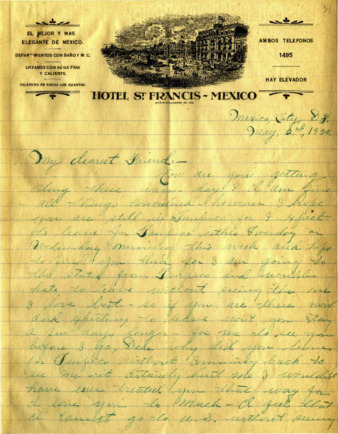 EL MEJOR Y MAS
ELEGANTE DE MEXICO.
DEPARTAMENTOS CON BAÑO Y W. C.
LAVABOS CON AGUA FRIA
Y CALIENTE.
TELEFONO EN TODOS LOS CUARTOS.
AMBOS TELEFONOS
1495
HAY ELEVADOR
HOTEL ST. FRANCIS - MEXICO
Mexico City, D.F.
May, 2nd, 1920
My dearest Friend:-
How are you getting
along these warm days? I am fine
all things considered however I hope
you are still in Tampico for I expect
to leave for Tampico this Tuesday or
Wednesday morning this week and hope
to find you there for I am going to
the states from Tampico and
hate to leave without seeing the one
I love best - so if you are there now
and to leave won't you stay
a few days longer for me to see you
before I go, why did you leave
for Tampico without coming back to
see me it certainly hurt me I wouldn't
have ever treated you that way for
I love you so much - I feel that
I cannot go to U.S. without seeing